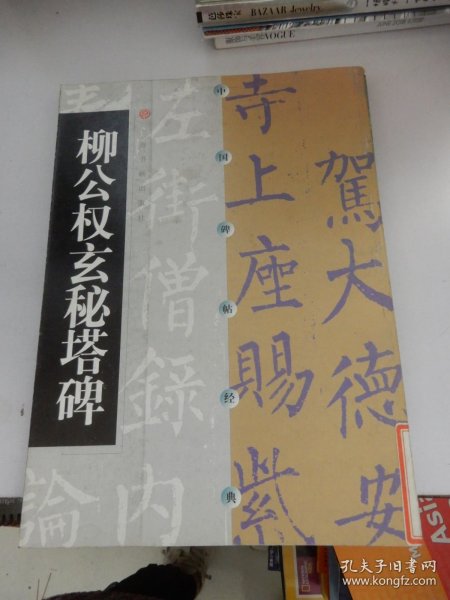 BAZAAR Jewelry
VOGUE
柳公权玄秘塔碑
上海书画出版社
中国碑帖经典
駕大德安
寺上座賜紫
左街僧錄內
論
ASI
孔夫子旧书网
www.kongfz.com